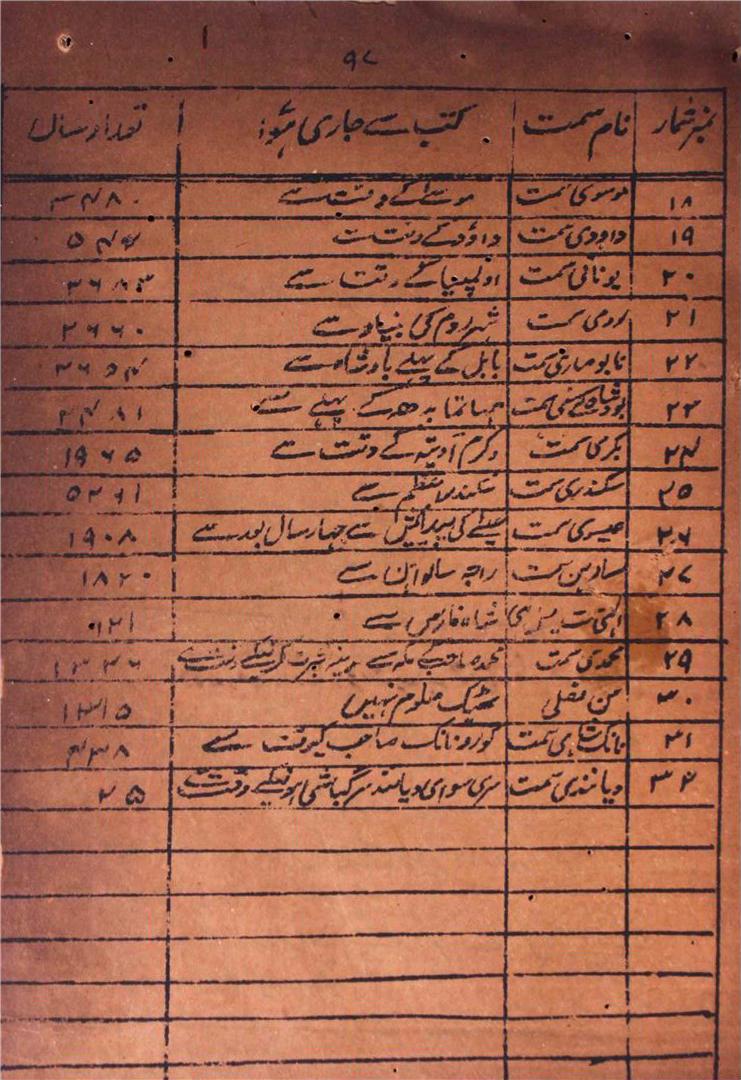 ۹۷
نمبر شمار نام سمت کب سے جاری ہوا: تعداد سال
۱۸ موسوی سمت موسےٰ کے وقت سے ۳۴۸۰
۱۹ داودی سمت داؤد کے وقت
۲۰ یونانی سمت اولمپیا کے وقت سے ۲۶۸۳
۲۱ رومی سمت شہر روم کی بنیاد سے ۲۶۶۰
۲۲ نابو سمت بابل کے پہلے بادشاہ سے ۲۶۵۴
۲۳ سمت مہاتما بدھ کے پہلے سے ۲۴۸۱
۲۴ بکرمی سمت وکرم آدیتہ کے وقت سے ۱۹۶۵
۲۵ سکندری سمت سکندر اعظم سے
۲۶ عیسوی سمت عیسےٰ کی پیدائش سے چہار سال بعد سے ۱۹۰۸
۲۷ سمت راجہ سالواہن سے ۱۸۳۰
۲۸ شاہ فارس سے
۲۹ محمدی سمت محمد صاحب کے مکہ سے مدینہ ہجرت کرنیکے وقت سے ۱۳۲۶
۳۰ سن فصلی ٹھیک معلوم نہیں ۱۳۱۵
۳۱ نانک شاہی سمت گورو نانک صاحب کیوقت سے ۴۳۸
۳۲ دیانندی سمت سری سوامی دیانند سرگباشی ہونیکے وقت سے ۲۵